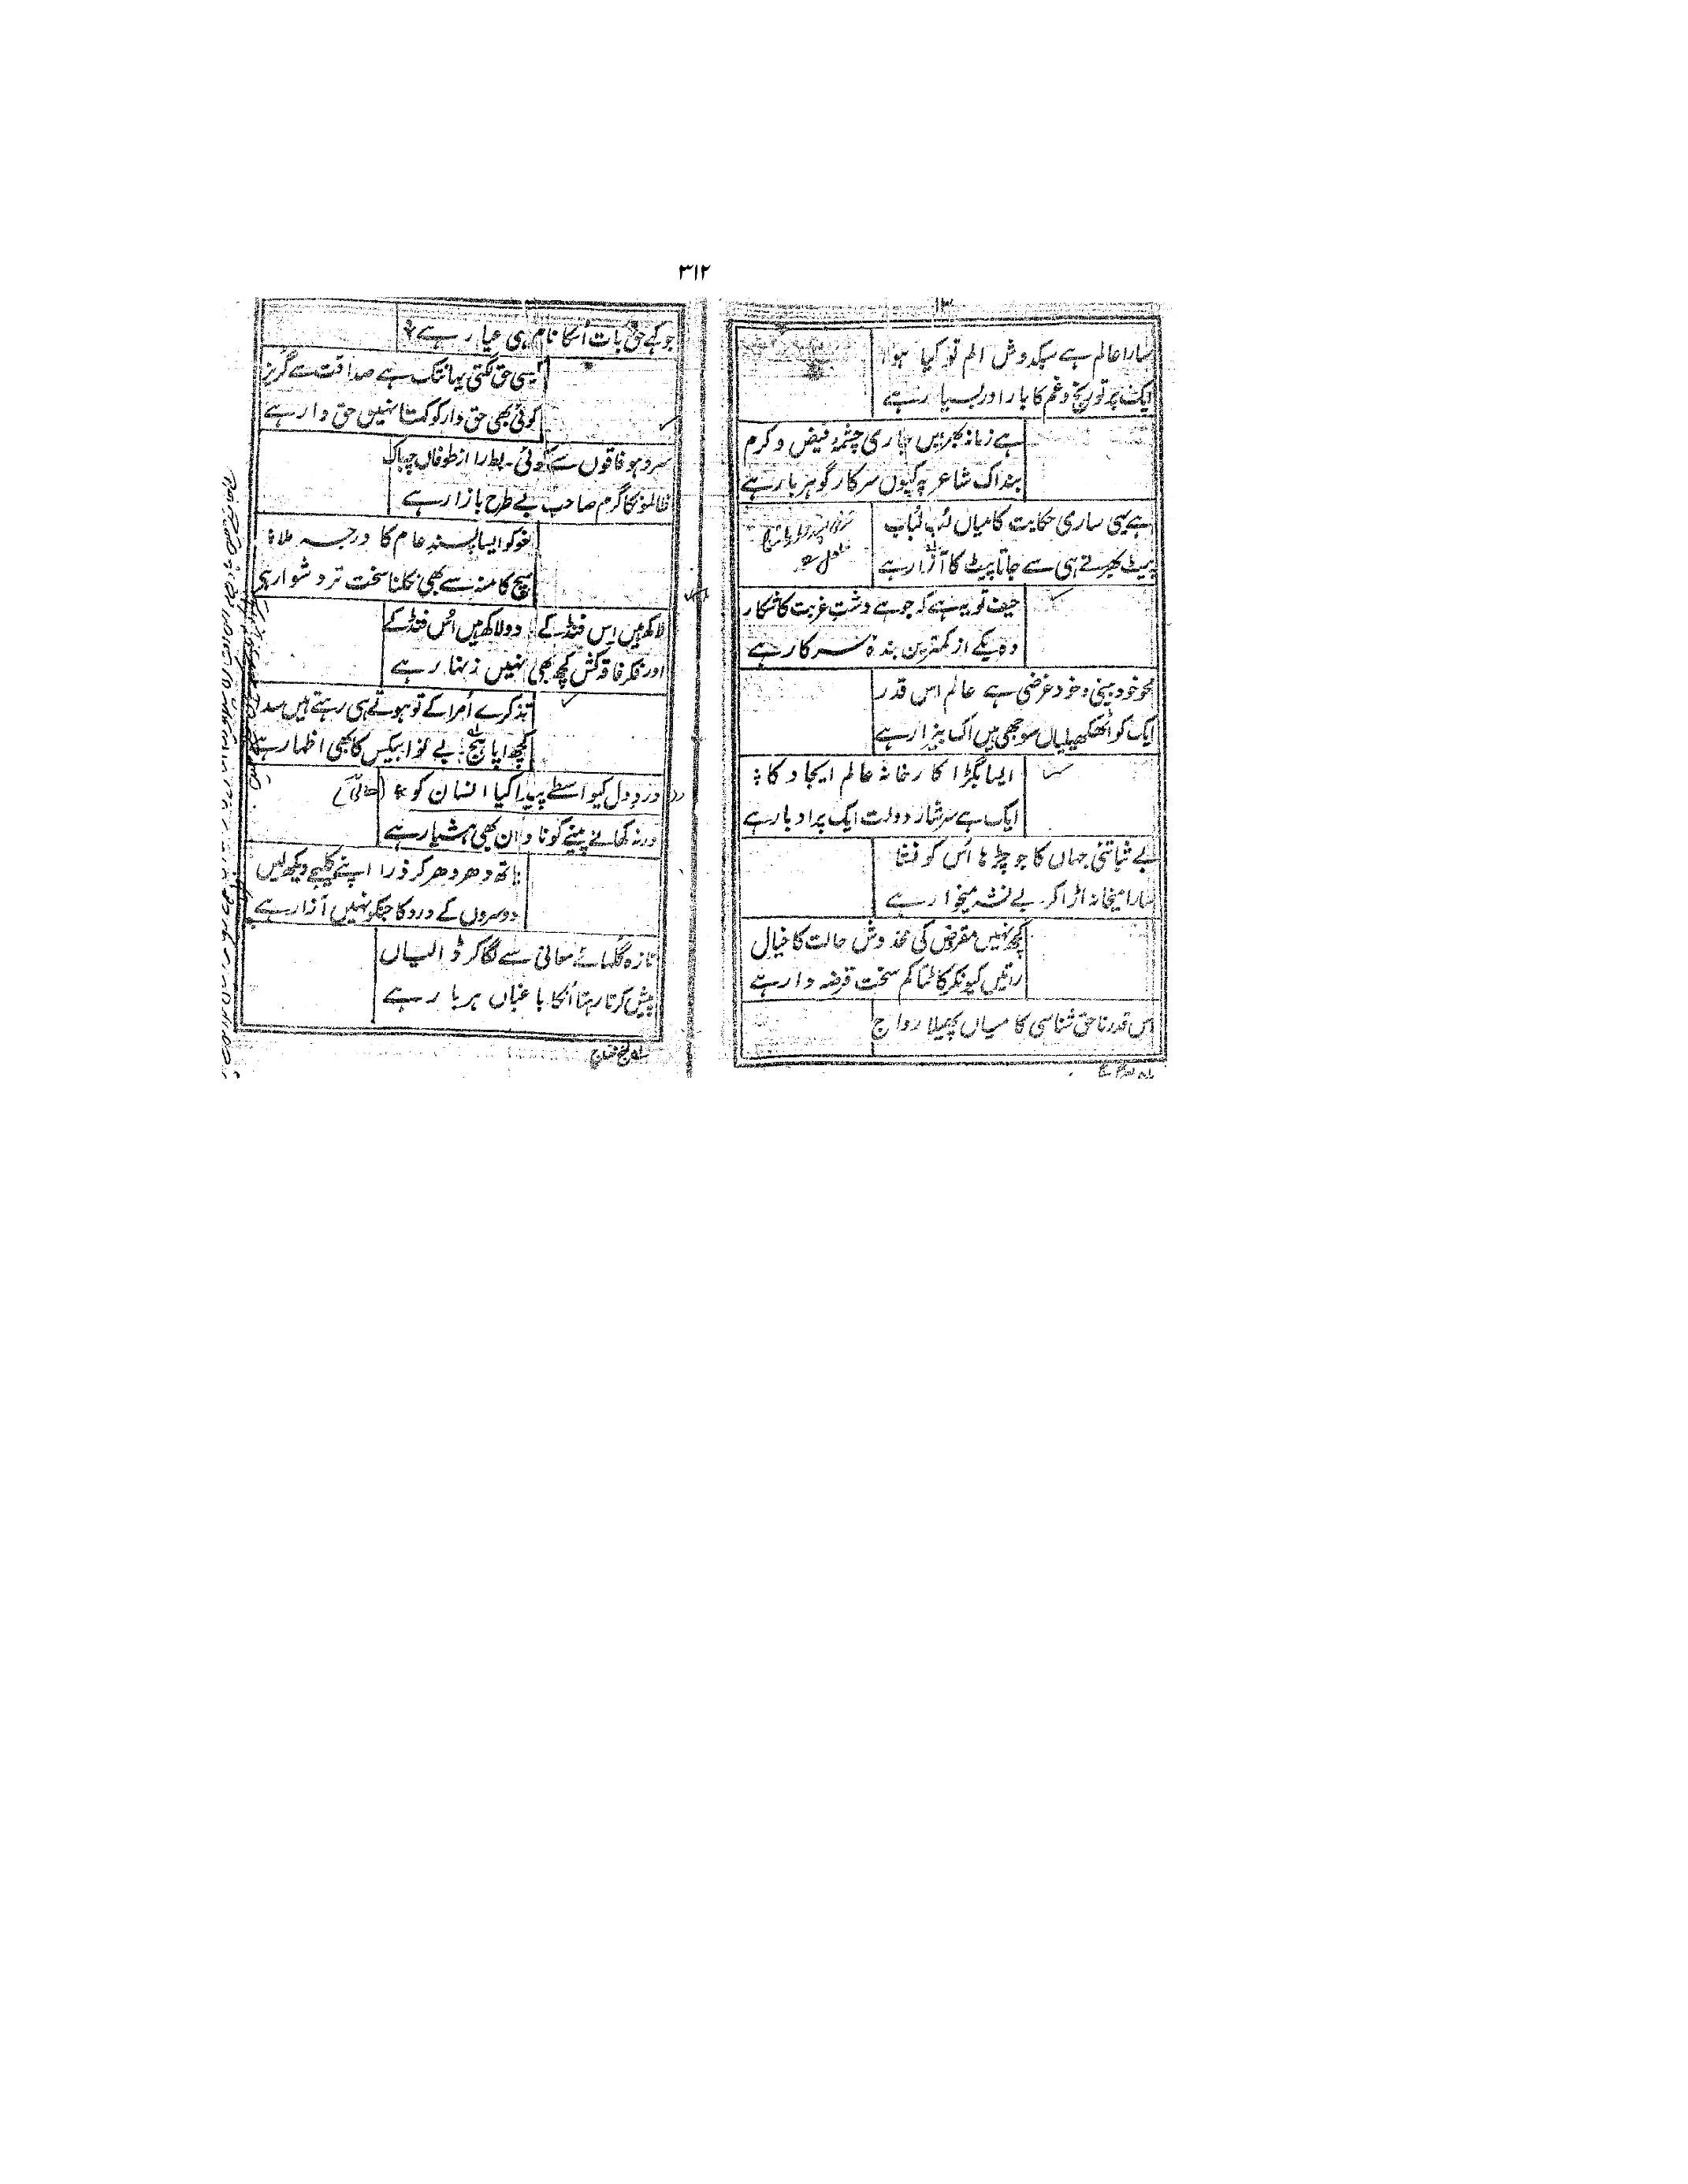 ۳۱۲
۱۳
سارا عالم ہے سبکدوش الم تو کیا ہوا
ایک پر تو رنج و غم کا بار اور بسیار ہے
ہے زمانہ بھر میں جاری چشمۂ فیض و کرم
بند اک شاعر پہ کیوں سرکار گوہر بار ہے
ہے یہی ساری حکایت کا میاں لُبِ لُباب
پیٹ بھرتے ہی سے جاتا پیٹ کا آزار ہے
حیف تو یہ ہے کہ جو ہے دشتِ غربت کا شکار
وہ یکے از کمترین بندہ سرکار ہے
محو خود بینی و خود غرضی ہے عالم اس قدر
ایک کو اٹھکھیلیاں سوجھی ہیں اک بیزار ہے
ایسا بگڑا کارخانہ عالم ایجاد کا
ایک ہے سرشار دولت ایک پر ادبار ہے
بے ثباتئی جہاں کا جو چڑھا اُس کو نشا
سارا میخانہ اڑا کر بے نشہ میخوار ہے
کچھ نہیں مقروض کی مخدوش حالت کا خیال
راتیں کیونکر کاٹتا کم سخت قرضہ دار ہے
اس قدر ناحق شناسی کا میاں پھیلا رواج
جو کہے حق بات اُسکا نام ہی عیار ہے
ایسی حق تلفی یہانتک ہے صداقت سے گریز
کوئی بھی حق دار کو کہتا نہیں حق دار ہے
سرد ہو فاقوں سے کوئی۔ بط را از طوفاں چہ باک
ظالمونکا گرم صاحب بے طرح بازار ہے
لغو کو ایسا پسندِ عام کا درجہ ملا
سچ کا منہ سے بھی نکلنا سخت تر دشوار ہے
لاکھ ہیں اِس فنڈ کے۔ دو لاکھ ہیں اُس فنڈ کے
اور فکر فاقہ کش کچھ بھی نہیں زنہار ہے
تذکرے اُمرا کے تو ہوتے ہی رہتے ہیں سدا
کچھ اپاہج۔ بے نوا بیکس کا بھی اظہار ہے
درد دل کیواسطے پیدا کیا انسان کو (حالی)
ورنہ کھانے پینے کو ناداں بھی ہشیار ہے
ہاتھ دھر دھر کر ذرا اپنے کلیجے دیکھ لیں
دوسروں کے درد کا جنکو نہیں آزار ہے
تازہ گلہائے معانی سے لگا کر ڈالیاں
پیش کرتا رہتا اُنکا باغباں ہر بار ہے